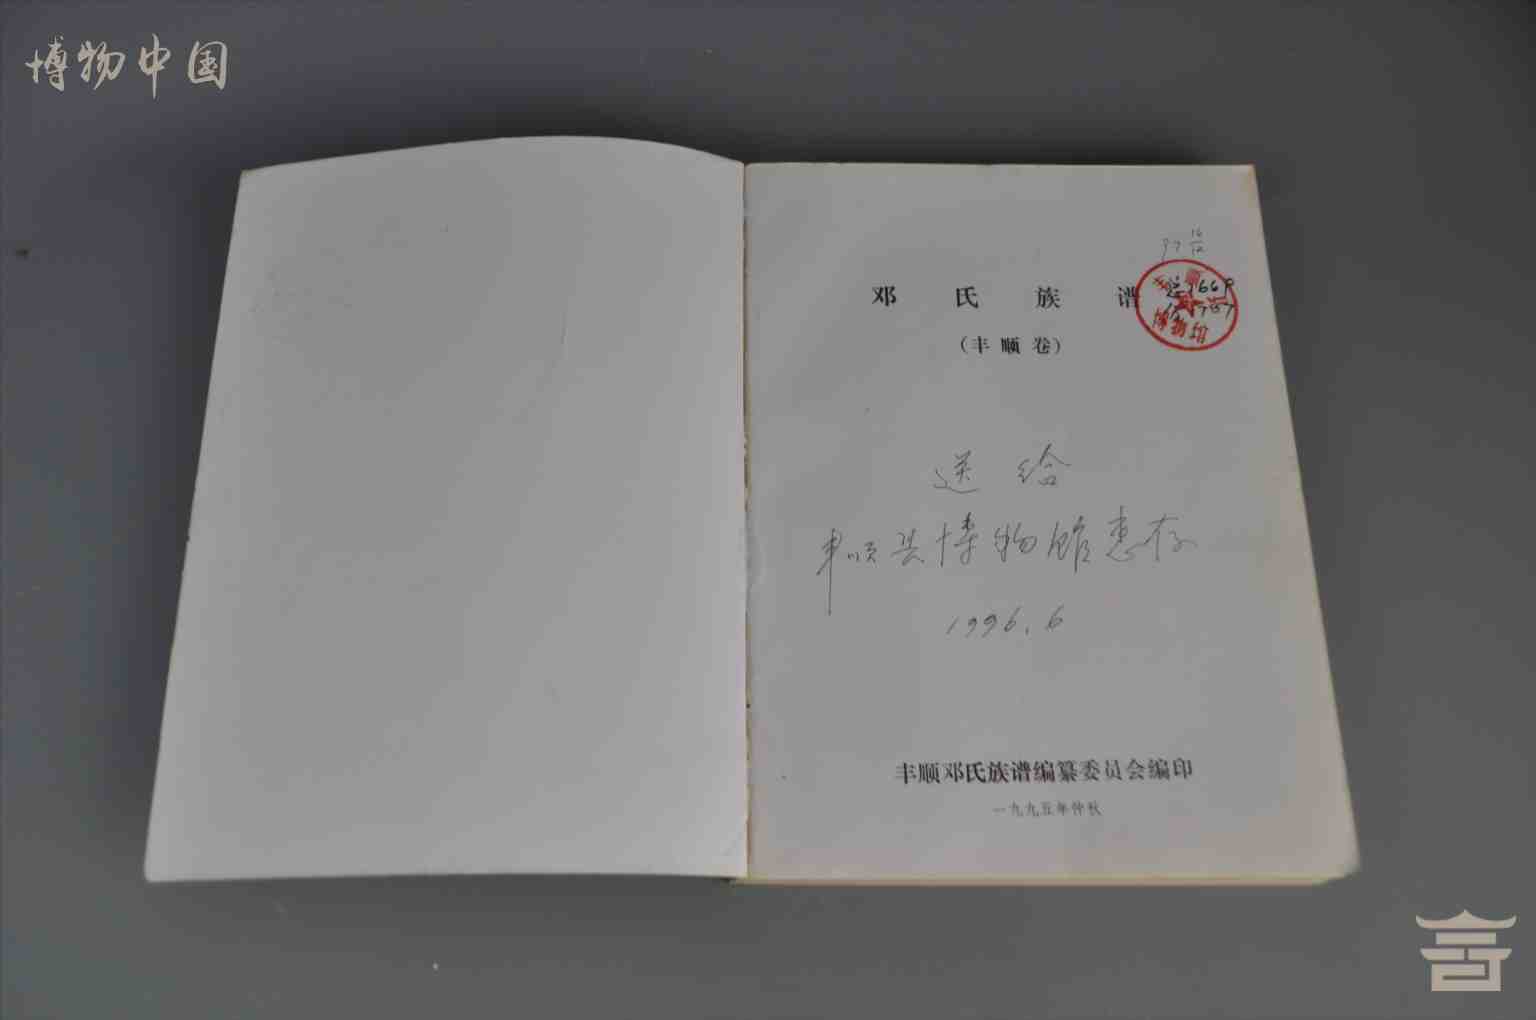 博物中国
97 16/12
邓氏族谱
总1669
博物馆
(丰顺卷)
送给
丰顺县博物馆惠存
1996.6
丰顺邓氏族谱编纂委员会编印
一九九五年仲秋